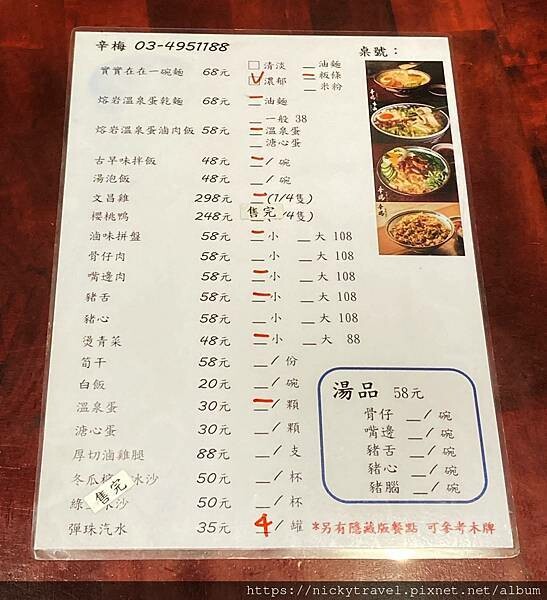 辛梅 03-4951188 桌號：
實實在在一碗麵 68元 清淡 油麵
濃郁 板條
米粉
熔岩溫泉蛋乾麵 68元 油麵
一般 38
熔岩溫泉蛋滷肉飯 58元 溫泉蛋
溏心蛋
古早味拌飯 48元 /碗
湯泡飯 48元 /碗
文昌雞 298元 (1/4隻)
櫻桃鴨 248元 售完 /4隻)
滷味拼盤 58元 小 大 108
骨仔肉 58元 小 大 108
嘴邊肉 58元 小 大 108
豬舌 58元 小 大 108
豬心 58元 小 大 108
燙青菜 48元 小 大 88
筍干 58元 /份
白飯 20元 /碗
溫泉蛋 30元 /顆
溏心蛋 30元 /顆
厚切滷雞腿 88元 /支
冬瓜 冰沙 50元 /杯
售完
綠 沙 50元 /杯
彈珠汽水 35元 4 /罐
湯品 58元
骨仔 /碗
嘴邊 /碗
豬舌 /碗
豬心 /碗
豬腦 /碗
*另有隱藏版餐點 可參考木牌
https://nickytravel.pixnet.net/album